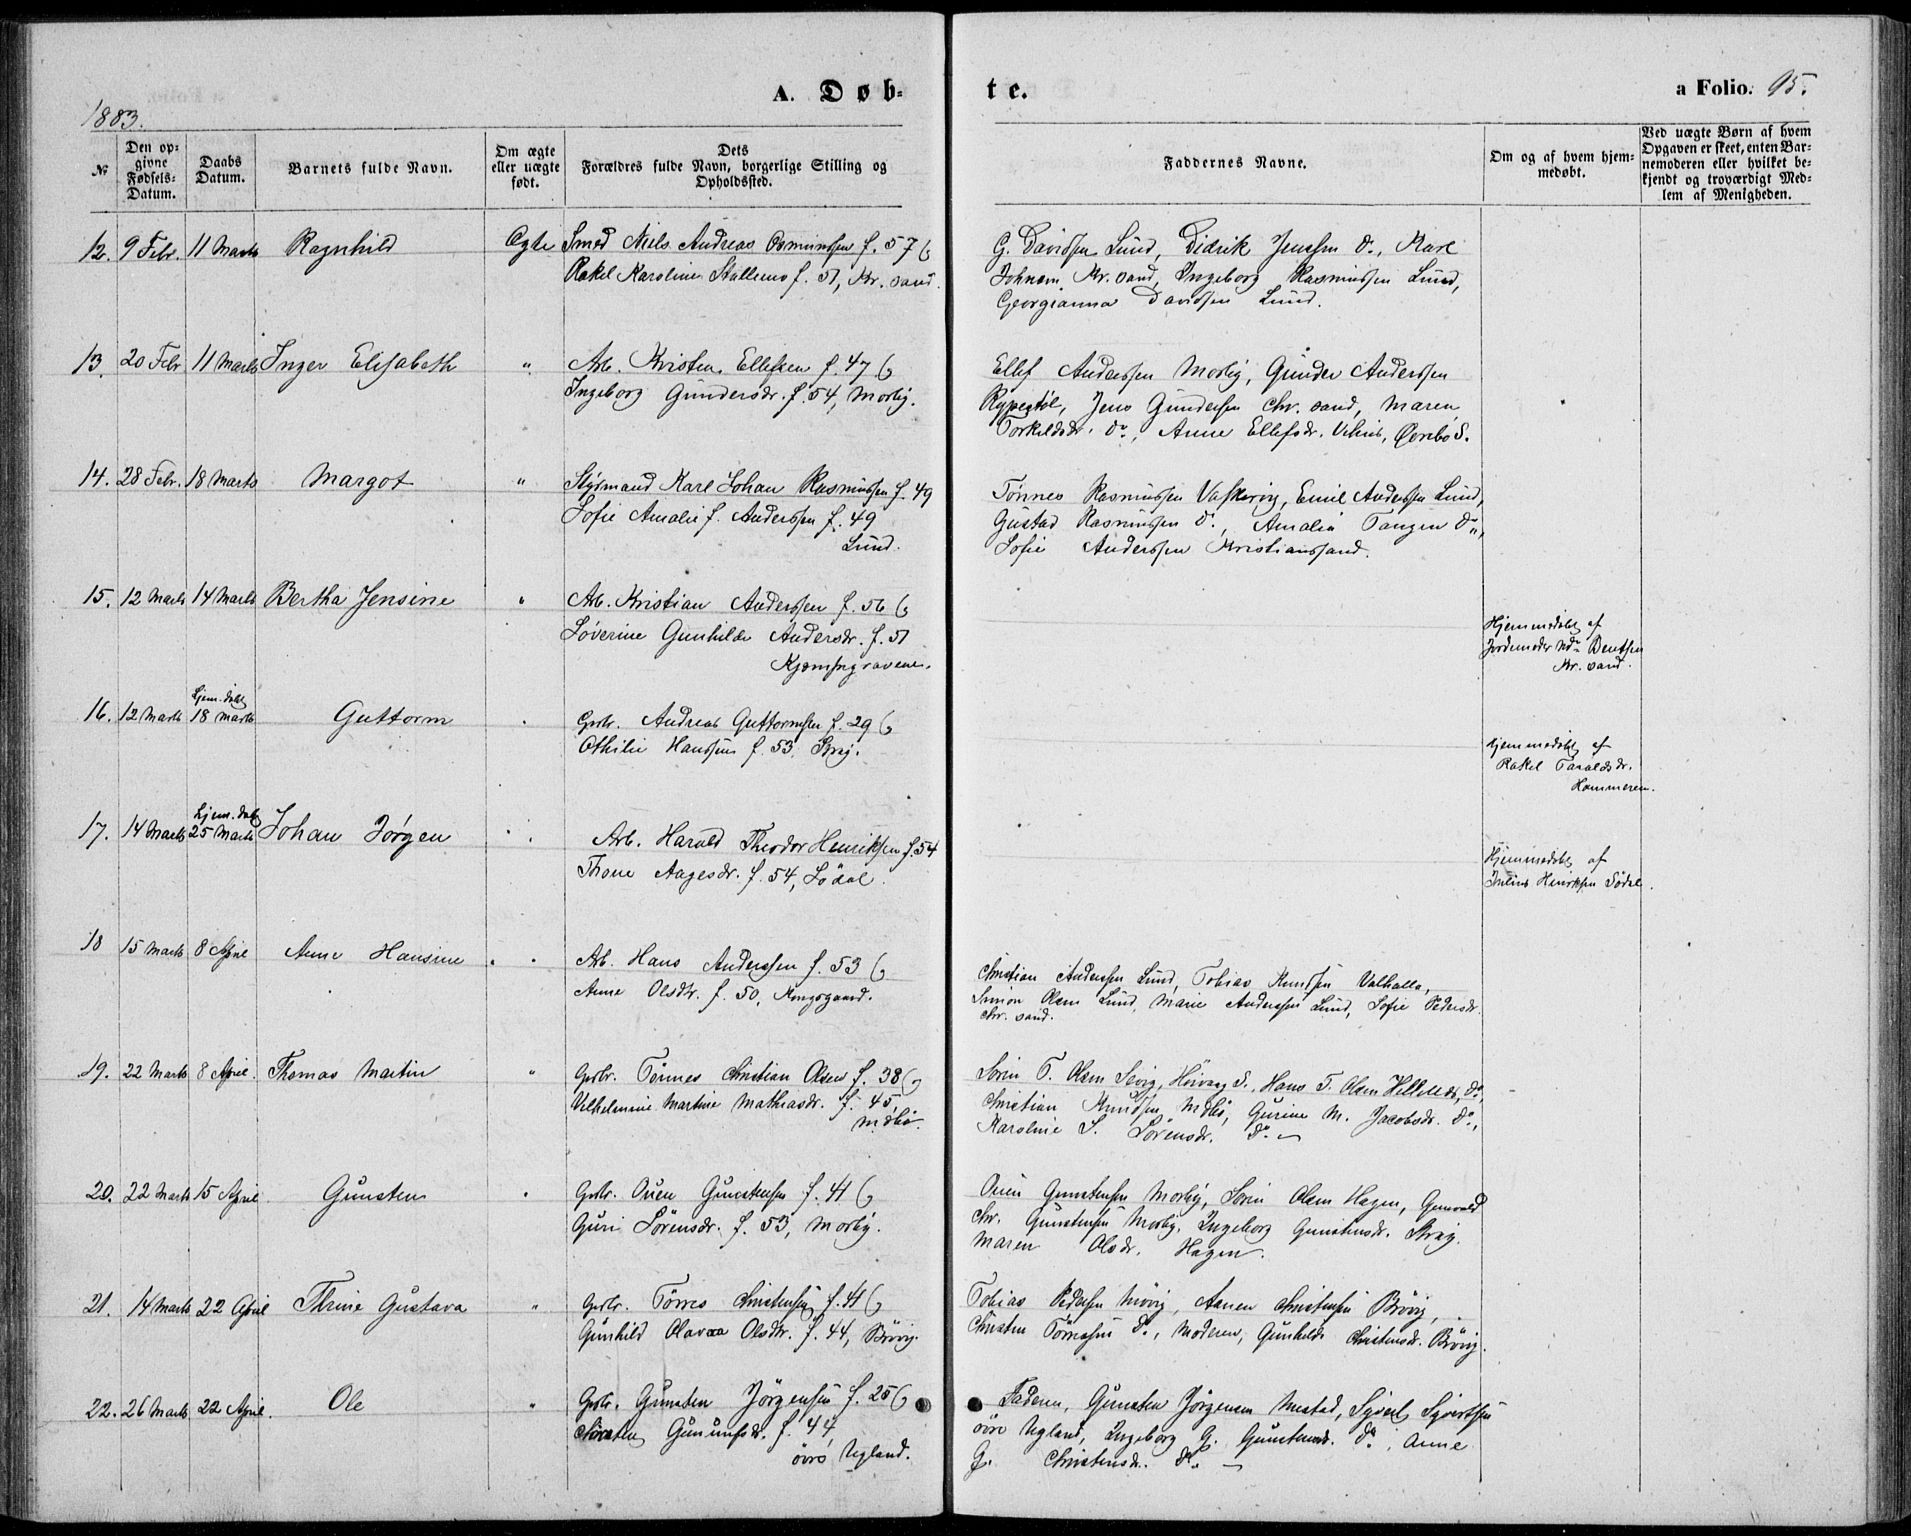 A. Døb-
te.
a Folio. 95.
1883.
№
Den op-
givne
Fødsels-
Datum.
Daabs
Datum.
Barnets fulde Navn.
Om ægte
eller uægte
født.
Dets
Forældres fulde Navn, borgerlige Stilling og
Opholdssted.
Faddernes Navne.
Om og af hvem hjem-
medøbt.
Ved uægte Børn af hvem
Opgaven er skeet, enten Bar-
nemoderen eller hvilket be-
kjendt og troværdigt Med-
lem af Menigheden.
12. 9 Febr. 11 Marts Ragnhild Ægte Smed Niels Andreas Osmundsen f. 57 &
Rakel Karoline f. 51, Kr. sand.
G. Davidsen Lund, Didrik Jenssen do., Karl
Johnsen Kr. sand, Ingeborg Rasmussen Lund,
Georgianna Davidsen Lund.
13. 20 Febr 11 Marts Inger Elisabeth " Arb. Kristen Ellefsen f. 47 &
Ingeborg Gundersdr. f. 54, Mosby.
Ellef Anderssen Mosby, Gunder Anderssen
Rypestøl, Jens Gundersen Chr. sand, Maren
Torkildsdr. do., Anne Ellefsdr. Øvrebø S.
14. 28 Febr. 18 Marts Margot " Styrmand Karl Johan Rasmussen f. 49
Sofie Amalie f. Anderssen f. 49
Lund.
Tønnes Rasmussen Emil Anderssen Lund,
Gustav Rasmussen do., Amalie Tangen do.,
Sofie Anderssen Kristianssand.
15. 12 Marts 14 Marts Bertha Jensine " Arb. Kristian Anderssen f. 56 &
Søverine Gunhilde Andersdr. f. 51
Kjempegravene.
Hjemmedøbt af
Jordemoder Bentsen
Kr. sand.
16. 12 Marts hjem. døbt
18 Marts Guttorm " Gbr. Andreas Guttormsen f. 29 &
Othilie Hanssen f. 53, Strai.
Hjemmedøbt af
Rakel Taraldsdr.
Hammeren.
17. 14 Marts hjem. døbt
25 Marts Johan Jørgen " Arb. Harald Theodor Henriksen f. 54
Thone Aagesdr. f. 54, Sødal.
Hjemmedøbt af
Julius Henriksen Sødal.
18 15 Marts 8 April Anne Hansine " Arb. Hans Anderssen f. 53 &
Anne Olsdtr. f. 50, Kongsgaard.
Christian Anderssen Lund, Tobias Knudsen Valhalla,
Simon Olsen Lund, Marie Anderssen Lund, Sofie Pedersdr.
Chr. sand.
19. 22 Marts 8 April. Thomas Martin " Gbr. Tønnes Christian Olsen f. 38 &
Vilhelmine Martine Mathiasdr. f. 45,
Medbø.
Sørin T. Olsen Høivaag S., Hans T. Olsen do.,
Christian Knudsen Medbø, Gurine M. Jacobsdr. do.,
Karoline S. Sørensdr. do.
20. 22 Marts 15 April Gunsten " Gbr. Ouen Gunstensen f. 41 &
Guri Sørensdr. f. 53, Mosby.
Ouen Gunstensen Mosby, Sørin Olsen Hagen, Gunvald
Chr. Gunstensen Mosby, Ingeborg Gunstensdr. Strai.
Maren Olsdr. Hagen.
21. 14 Marts 22 April Thrine Gustava " Gbr. Tørres Christensen f. 41 &
Gunhild Olavaa Olsdtr. f. 44, Brøvig.
Tobias Pedersen Aanen Christensen Brøvig,
Christen Tørressen do., Moderen, Gunhilde Christensdr. Brøvig.
22. 26 Marts 22 April. Ole " Gbr. Gunsten Jørgensen f. 25 &
f. 44,
øvre Ugland.
Faderen, Gunsten Jørgensen Syvert Syvertsen
øvre Ugland, Ingeborg G. Gunstensdr. do., Anne
G. Christensdr. do.